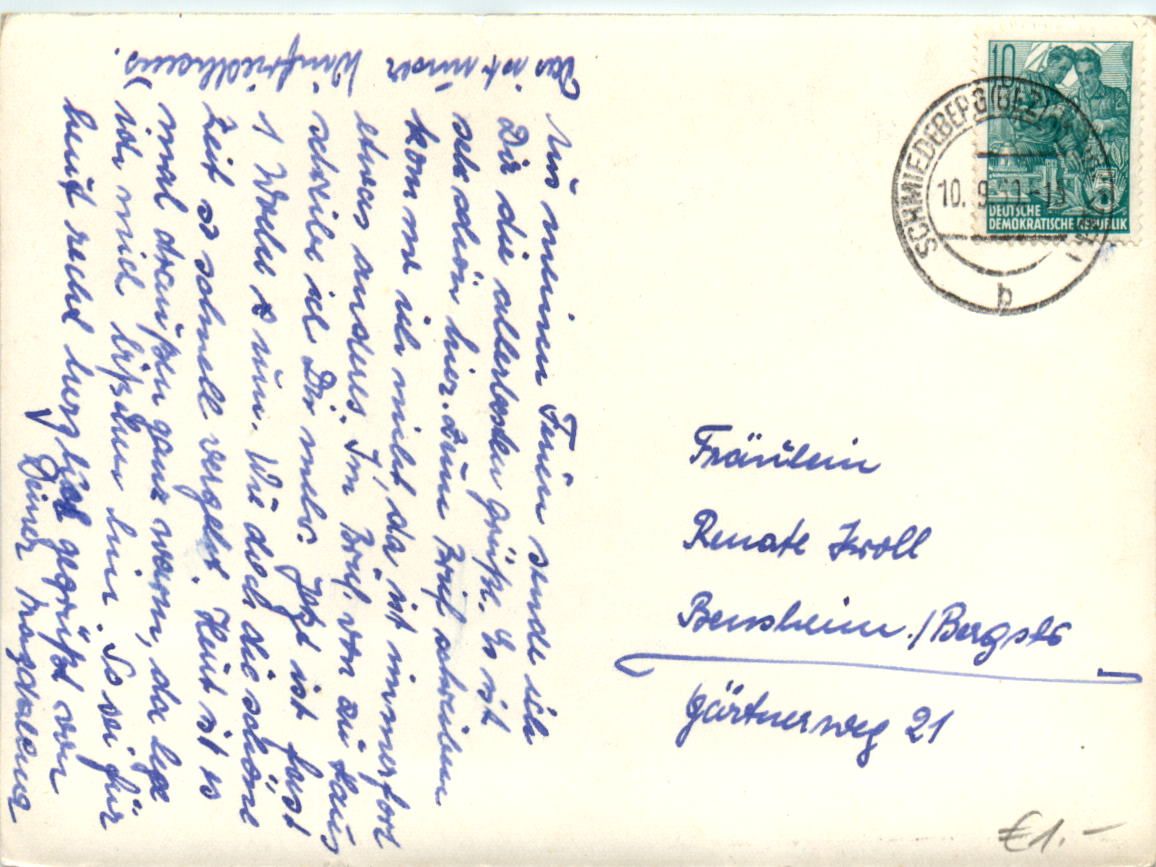 Das ist unser Winfriedhaus.
Aus meinen Ferien sende ich
Dir die allerbesten Grüße. Es ist
sehr schön hier. Zum Brief schreiben
komme ich nicht, da ist immerfort
etwas anderes. Im Brief von zu Haus
schreibe ich Dir mehr. Jetzt ist fast
1 Woche rum. Wie doch die schöne
Zeit so schnell vergeht. Heut ist es
mal draußen ganz warm, da lege
ich mich bißchen hin. So sei für
heut recht herzlich gegrüßt von
Deiner Magdalena
10
DEUTSCHE
DEMOKRATISCHE REPUBLIK
SCHMIEDEBERG (BEZ
10. 9.
b
Fräulein
Renate Kroll
Bensheim./Bergstr
Gärtnerweg 21
€1.-